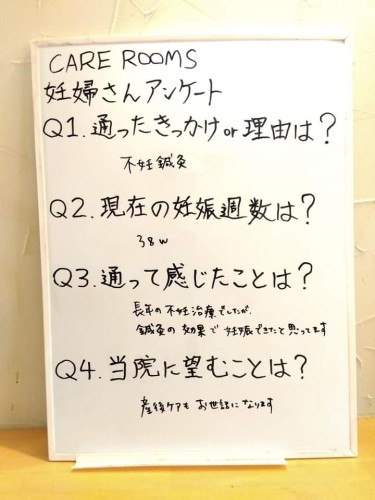 CARE ROOMS
妊婦さんアンケート
Q1.通ったきっかけor理由は?
不妊鍼灸
Q2.現在の妊娠週数は?
38w
Q3.通って感じたことは?
長年の不妊治療でしたが、
鍼灸の効果で妊娠できたと思ってます
Q4.当院に望むことは?
産後ケアもお世話になります